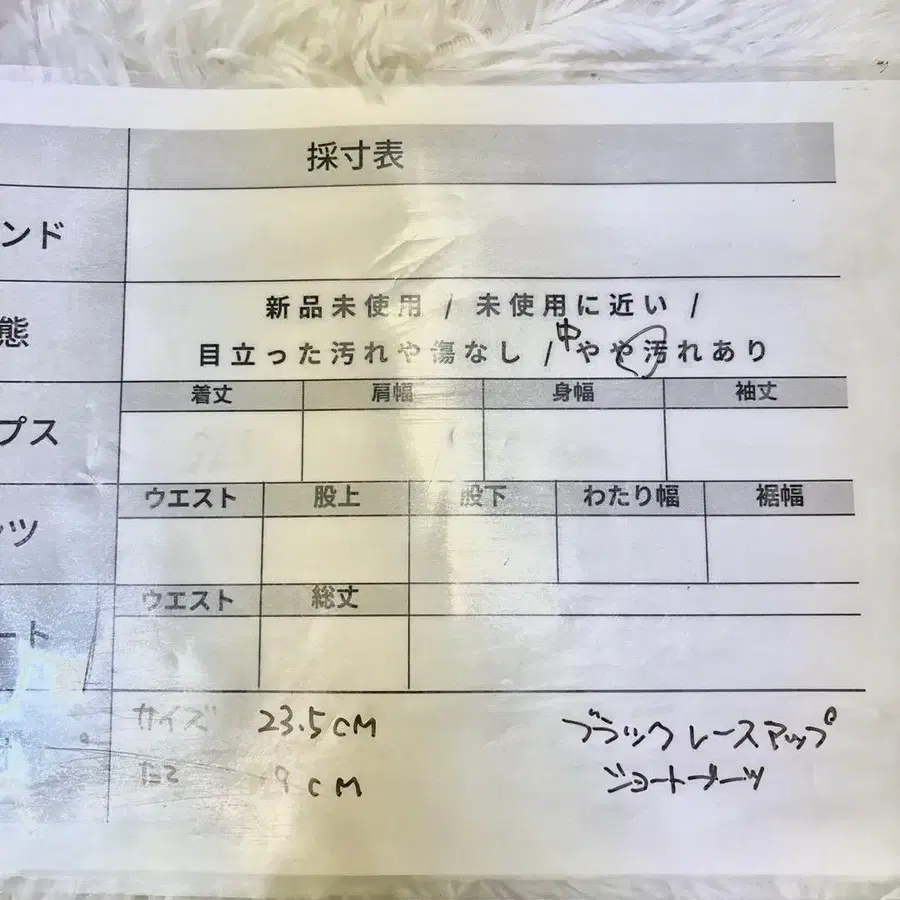 採寸表
ンド
態
新品未使用 / 未使用に近い /
目立った汚れや傷なし / 中 やや汚れあり
プス
着丈 肩幅 身幅 袖丈
ンツ
ウエスト 股上 股下 わたり幅 裾幅
ート
ウエスト 総丈
サイズ 23.5cM
ブラックレースアップ
たて 9cM
ショートブーツ